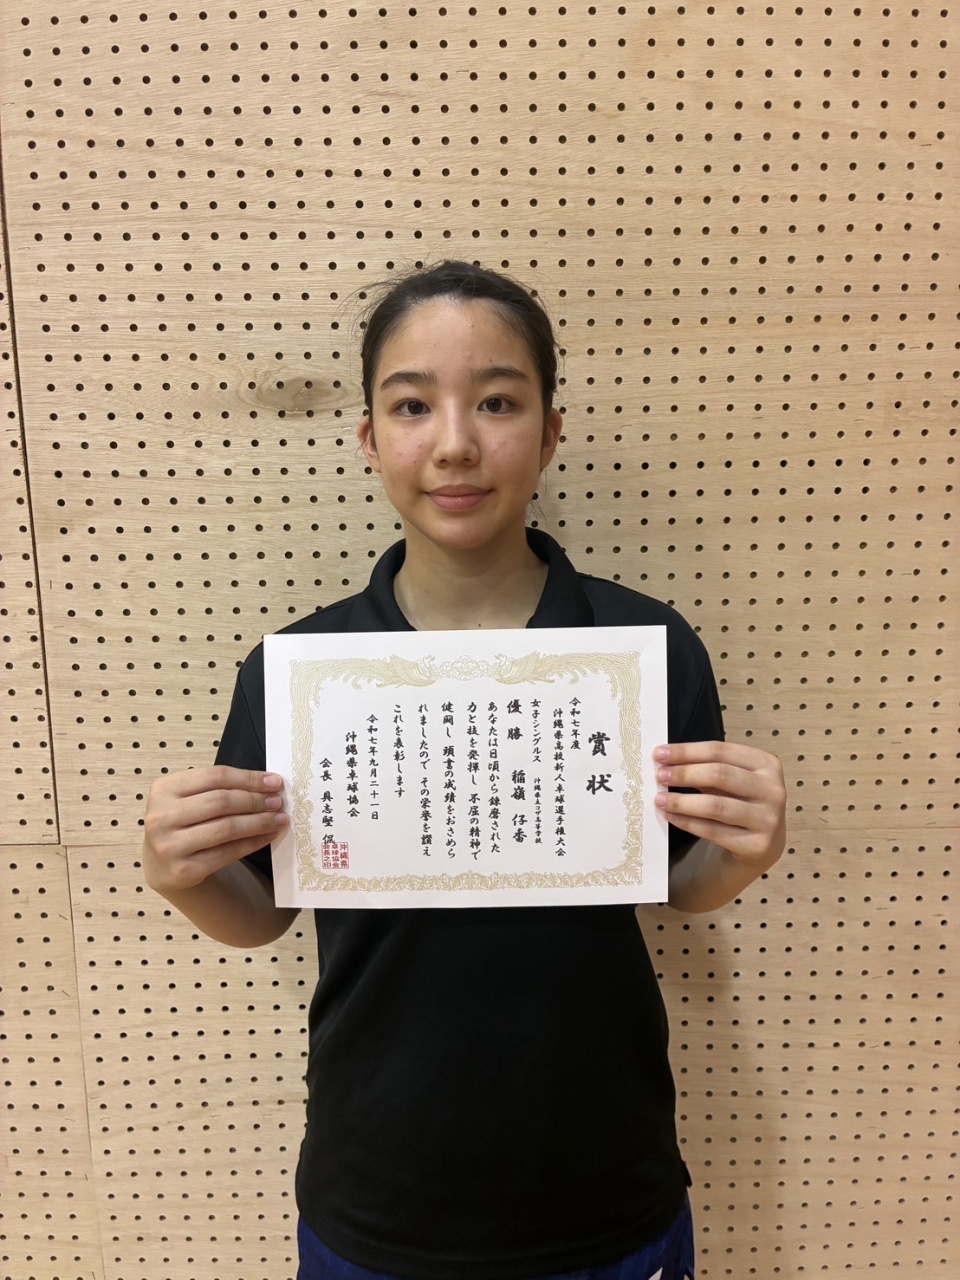 賞状
令和七年度
沖縄県高校新人卓球選手権大会
女子シングルス 沖縄県立コザ高等学校
優勝 稲嶺 仔香
あなたは日頃から錬磨された
力と技を発揮し 不屈の精神で
健闘し 頭書の成績をおさめら
れましたので その栄誉を讃え
これを表彰します
令和七年九月二十一日
沖縄県卓球協会
会長 具志堅 侃
沖縄県
卓球協会
会長之印